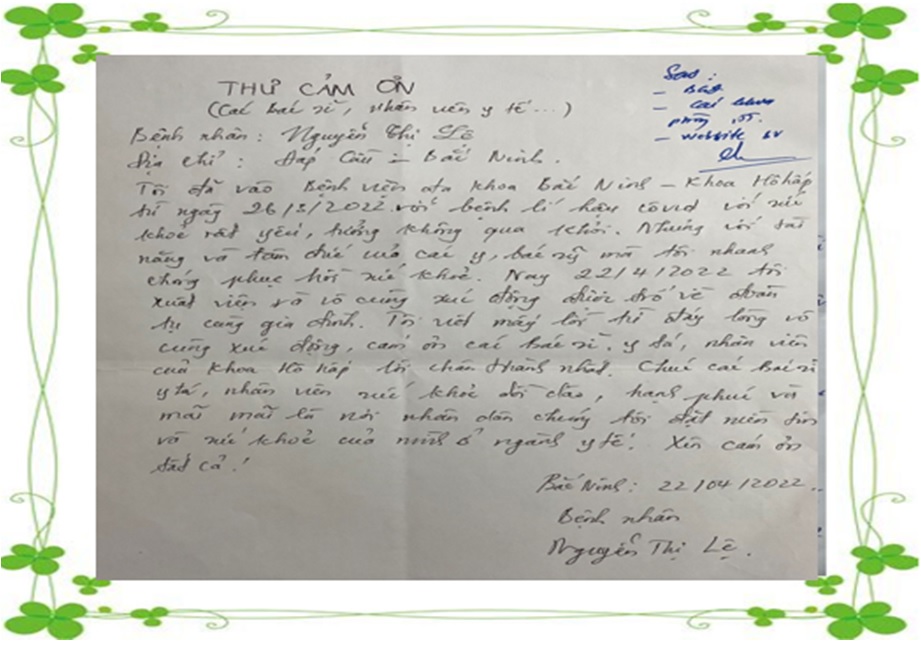 THƯ CẢM ƠN
(Các bác sĩ, nhân viên y tế...)
Bệnh nhân: Nguyễn Thị Lệ
Địa chỉ: Đáp Cầu - Bắc Ninh.
Sao:
- BGĐ
- Các khoa
phòng
- Website BV
Tôi đã vào Bệnh viện đa khoa Bắc Ninh - Khoa Hô hấp
từ ngày 26/3/2022 với bệnh lí hậu covid với sức
khoẻ rất yếu, tưởng không qua khỏi. Nhưng với tài
năng và tâm đức của các y, bác sỹ mà tôi nhanh
chóng phục hồi sức khoẻ. Nay 22/4/2022 tôi
xuất viện và vô cùng xúc động được trở về đoàn
tụ cùng gia đình. Tôi viết mấy lời từ đáy lòng vô
cùng xúc động, cám ơn các bác sĩ, y tá, nhân viên
của khoa Hô hấp lời chân thành nhất. Chúc các bác sĩ
y tá, nhân viên sức khoẻ dồi dào, hạnh phúc và
mãi mãi là nơi nhân dân chúng tôi đặt niềm tin
và sức khoẻ của mình ở ngành y tế. Xin cám ơn
tất cả!
Bắc Ninh: 22/04/2022
Bệnh nhân
Nguyễn Thị Lệ.